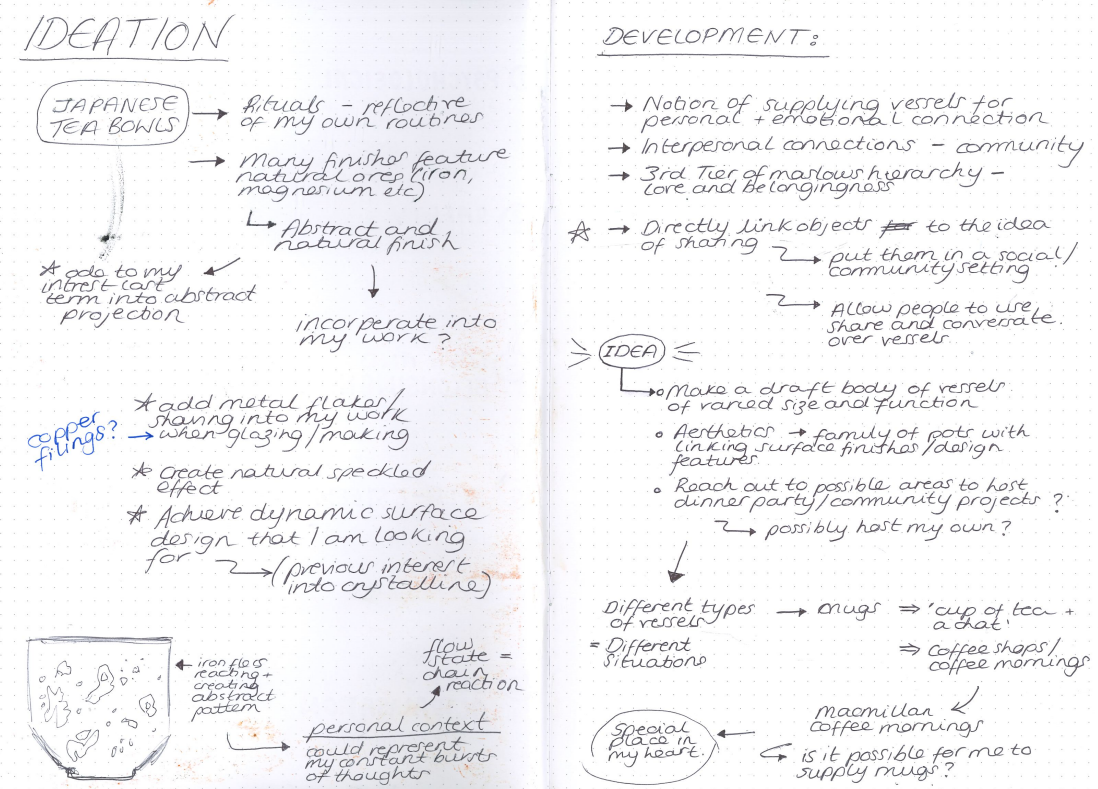 IDEATION
JAPANESE
TEA BOWLS
→ Rituals - reflective
of my own routines
→ Many finishes feature
natural ores (iron,
magnesium etc)
↳ Abstract and
natural finish
☆ ode to my
intrest last
term into abstract
projection
incorperate into
my work?
☆ add metal flakes/
shaving into my work
when glazing/making
copper
filings? →
☆ Create natural speckled
effect
☆ Achieve dynamic surface
design that I am looking
for
→ (previous interest
into crystalline)
← iron flecs
reacting +
creating
abstract
pattern
personal context
could represent
my constant bursts
of thoughts
flow
state =
chain
reaction
DEVELOPMENT:
→ Notion of supplying vessels for
personal + emotional connection
→ Interpesonal connections - community
→ 3rd Tier of maslows hierarchy -
love and belongingness
☆ → Directly link objects to the idea
of sharing
→ put them in a social/
community setting
→ Allow people to use,
share and conversate
over vessels
IDEA
Make a draft body of vessels
of varied size and function
Aesthetics → family of pots with
linking surface finishes/design
features
Reach out to possible areas to host
dinner party/community projects?
→ possibly host my own?
Different types → mugs ⇒ 'cup of tea +
of vessels a chat'
= Different ⇒ coffee shops/
situations coffee mornings
macmillan
coffee mornings
special
place in
my heart.
is it possible for me to
supply mugs?